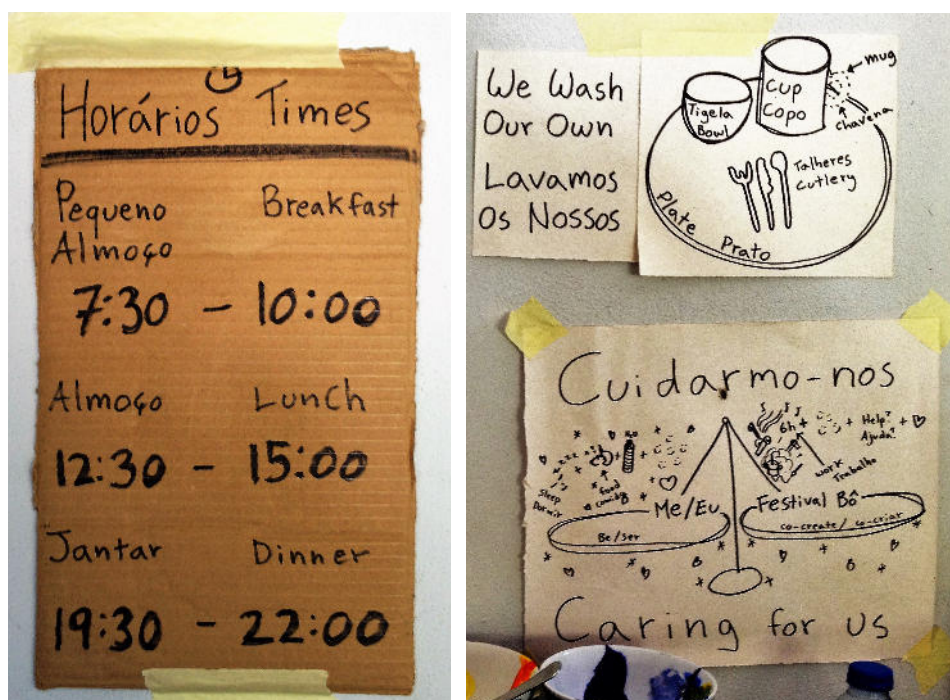 Horários Times
Pequeno Breakfast
Almoço
7:30 - 10:00
Almoço Lunch
12:30 - 15:00
Jantar Dinner
19:30 - 22:00
We Wash
Our Own
Lavamos
Os Nossos
mug
Cup
Copo
chavena
Tigela
Bowl
Talheres
Cutlery
Plate Prato
Cuidarmo-nos
zzz
H2O
6h +
+ Help?
Ajuda?
+
work
Trabalho
Sleep
Dormir
food
comida
Me/Eu
Festival Bô
Be/ser
co-create/ co-criar
Caring for us